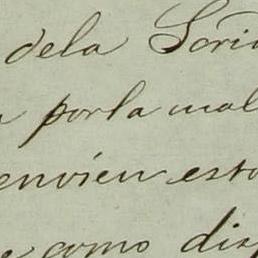 dela Scri
porla mal
envien esto
como dis